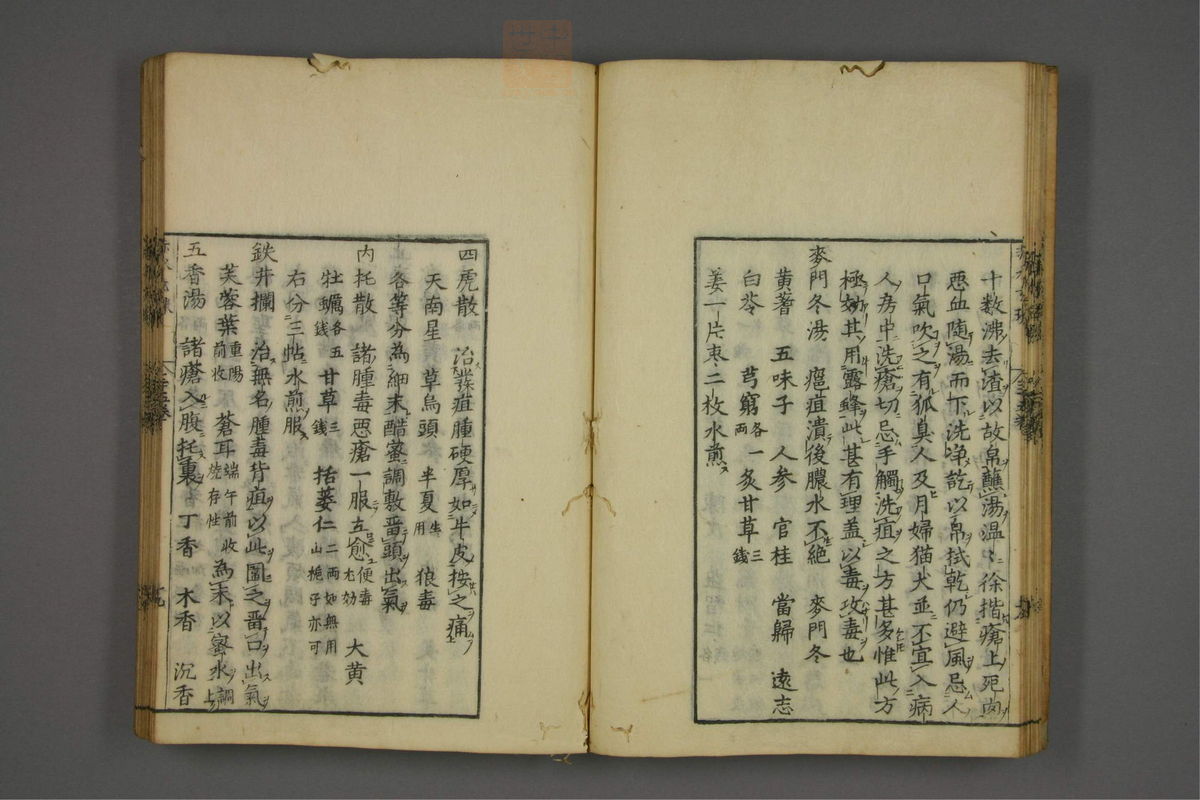 十数沸去渣以故帛蘸湯温々徐揩瘡上死肉
悪血随湯而下洗净訖以帛拭乾仍避風忌人
口氣吹之有狐臭人及月婦猫犬並不宜入病
人房中洗瘡切忌手觸洗疽之方甚多惟此方
極妙其用露蜂此甚有理盖以毒攻毒也
麥門冬湯 瘡疽潰後膿水不絶 麥門冬
黄蓍 五味子 人参 官桂 當歸 遠志
白苓 芎藭各一両 炙甘草三銭
姜一片枣二枚水煎
四虎散 治癰疽腫硬厚如牛皮按之痛
天南星 草烏頭 半夏生用 狼毒
各等分為細末醋蜜調敷畱頭出氣
内托散 諸腫毒悪瘡一服立愈便毒尤効 大黄
牡蠣各五銭 甘草三銭 括蔞仁二両如無用山梔子亦可
右分三帖水煎服
鉄井欄 治無名腫毒背疽以此圍之畱口出氣
芙蓉葉重陽前收 蒼耳端午前收燒存性 為末以蜜水調上
五香湯 諸瘡入腹托裏 丁香 木香 沉香